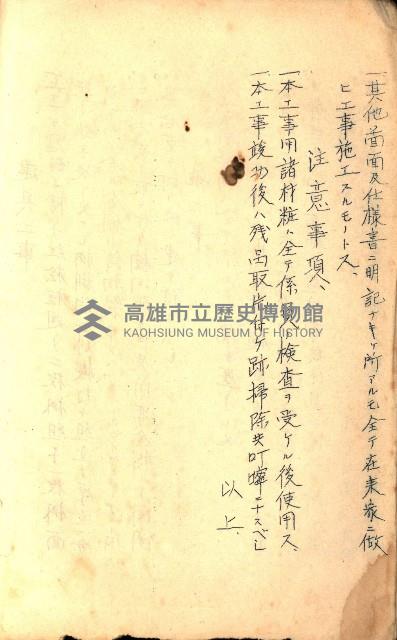 一其他萻面及仕様書ニ明記ナキケ所アルモ全テ在来家ニ倣
ヒ工事施工スルモノトス、
注意事項、
一本工事用諸材料ハ全テ係員ノ検査ヲ受ケル後使用ス、
一本工事竣功後ハ残品取片付ケ跡掃除共叮嚀ニナスベシ
以上、
高雄市立歷史博物館
KAOHSIUNG MUSEUM OF HISTORY